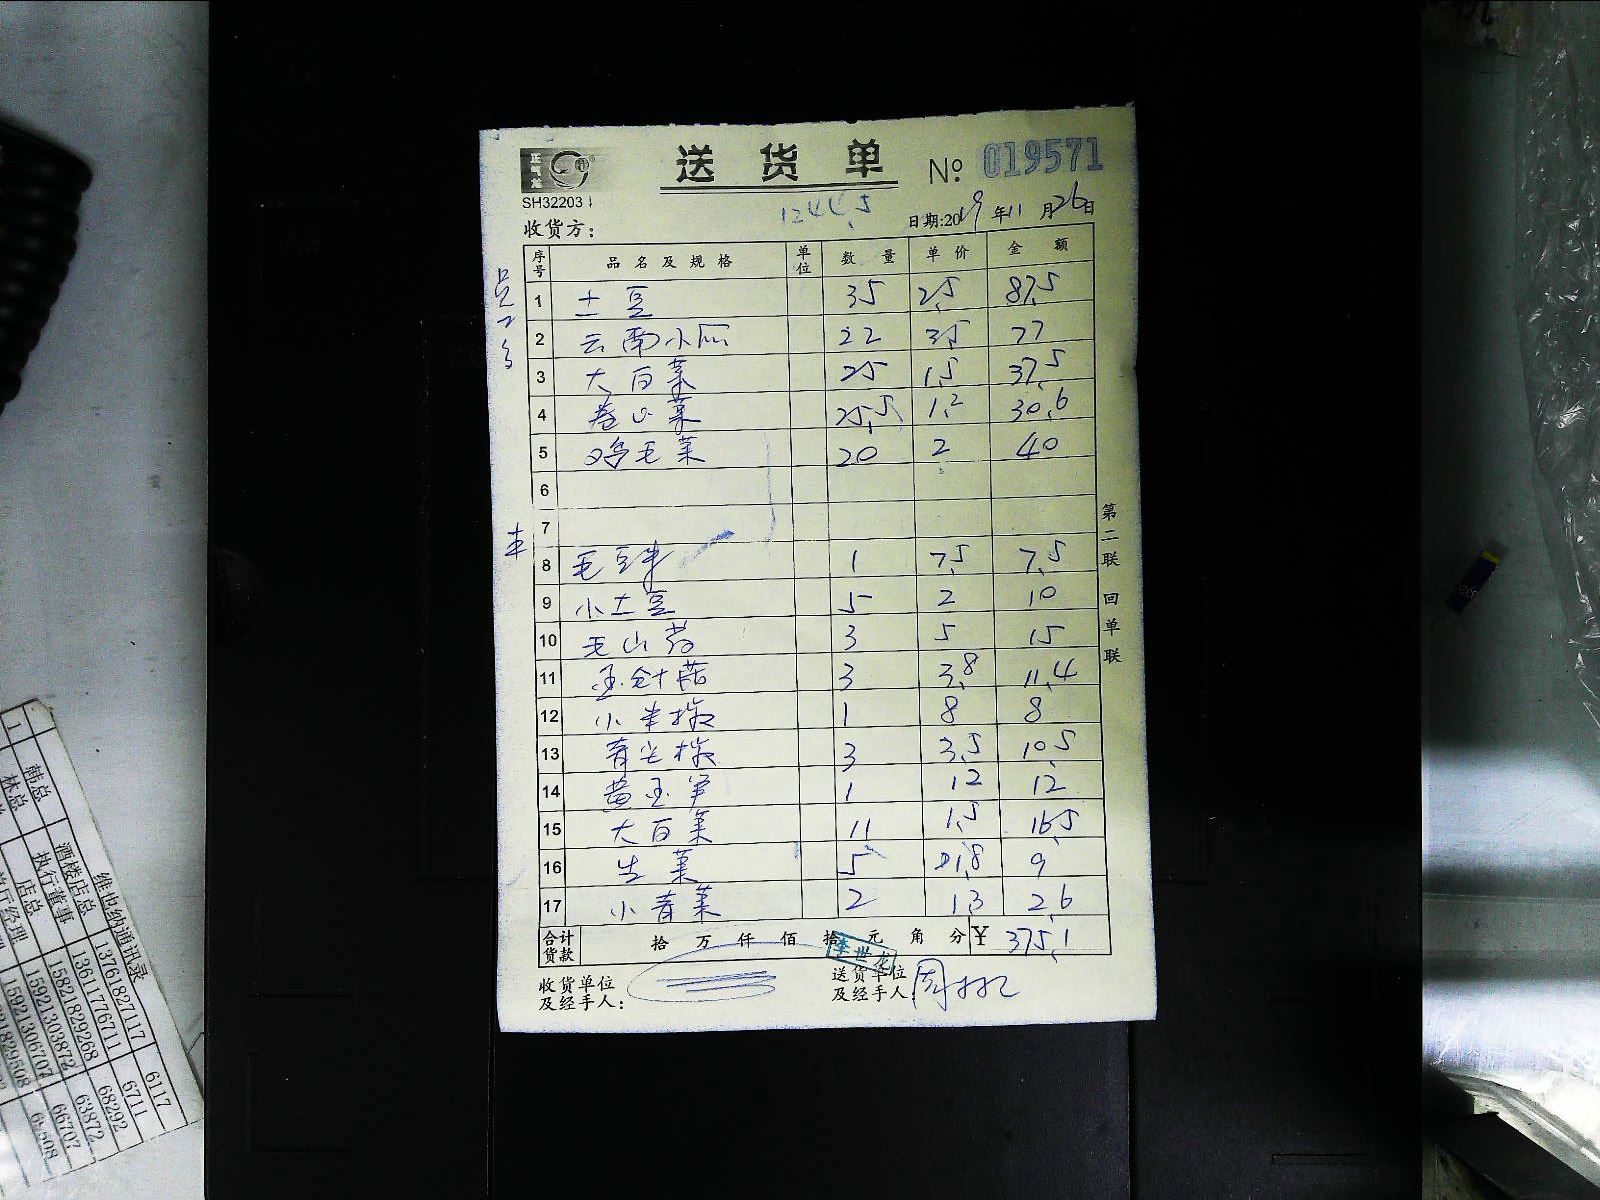 正气龙
送货单 № 019571
SH32203
收货方: 日期:2019年11月26日
序号 品名及规格 单位 数量 单价 金额
1 土豆 35 2.5 87.5
2 云南小瓜 22 3.5 77
3 大白菜 25 1.5 37.5
4 卷心菜 25.5 1.2 30.6
5 鸡毛菜 20 2 40
6
7
8 毛豆 1 7.5 7.5
9 小土豆 5 2 10
10 毛山药 3 5 15
11 金针菇 3 3.8 11.4
12 小米椒 1 8 8
13 青尖椒 3 3.5 10.5
14 黄 1 12 12
15 大白菜 11 1.5 16.5
16 生菜 5 1.8 9
17 小青菜 2 1.3 2.6
合计货款 拾万仟佰拾元角分 ¥ 375.1
李世龙
收货单位及经手人: 送货单位及经手人:
第二联 回单联
维也纳通讯录
韩总 酒楼店总 13761827117 6117
林总 执行董事 13611776711 6711
店总 15821829268 68292
15921303872 63872
15921306707 66707